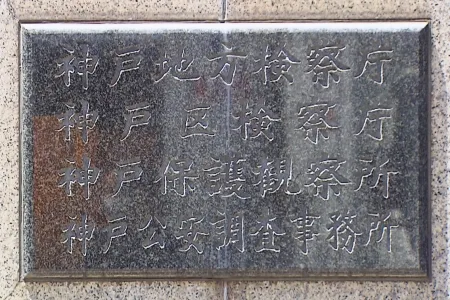 神戸地方検察庁
神戸区検察庁
神戸保護観察所
神戸公安調査事務所